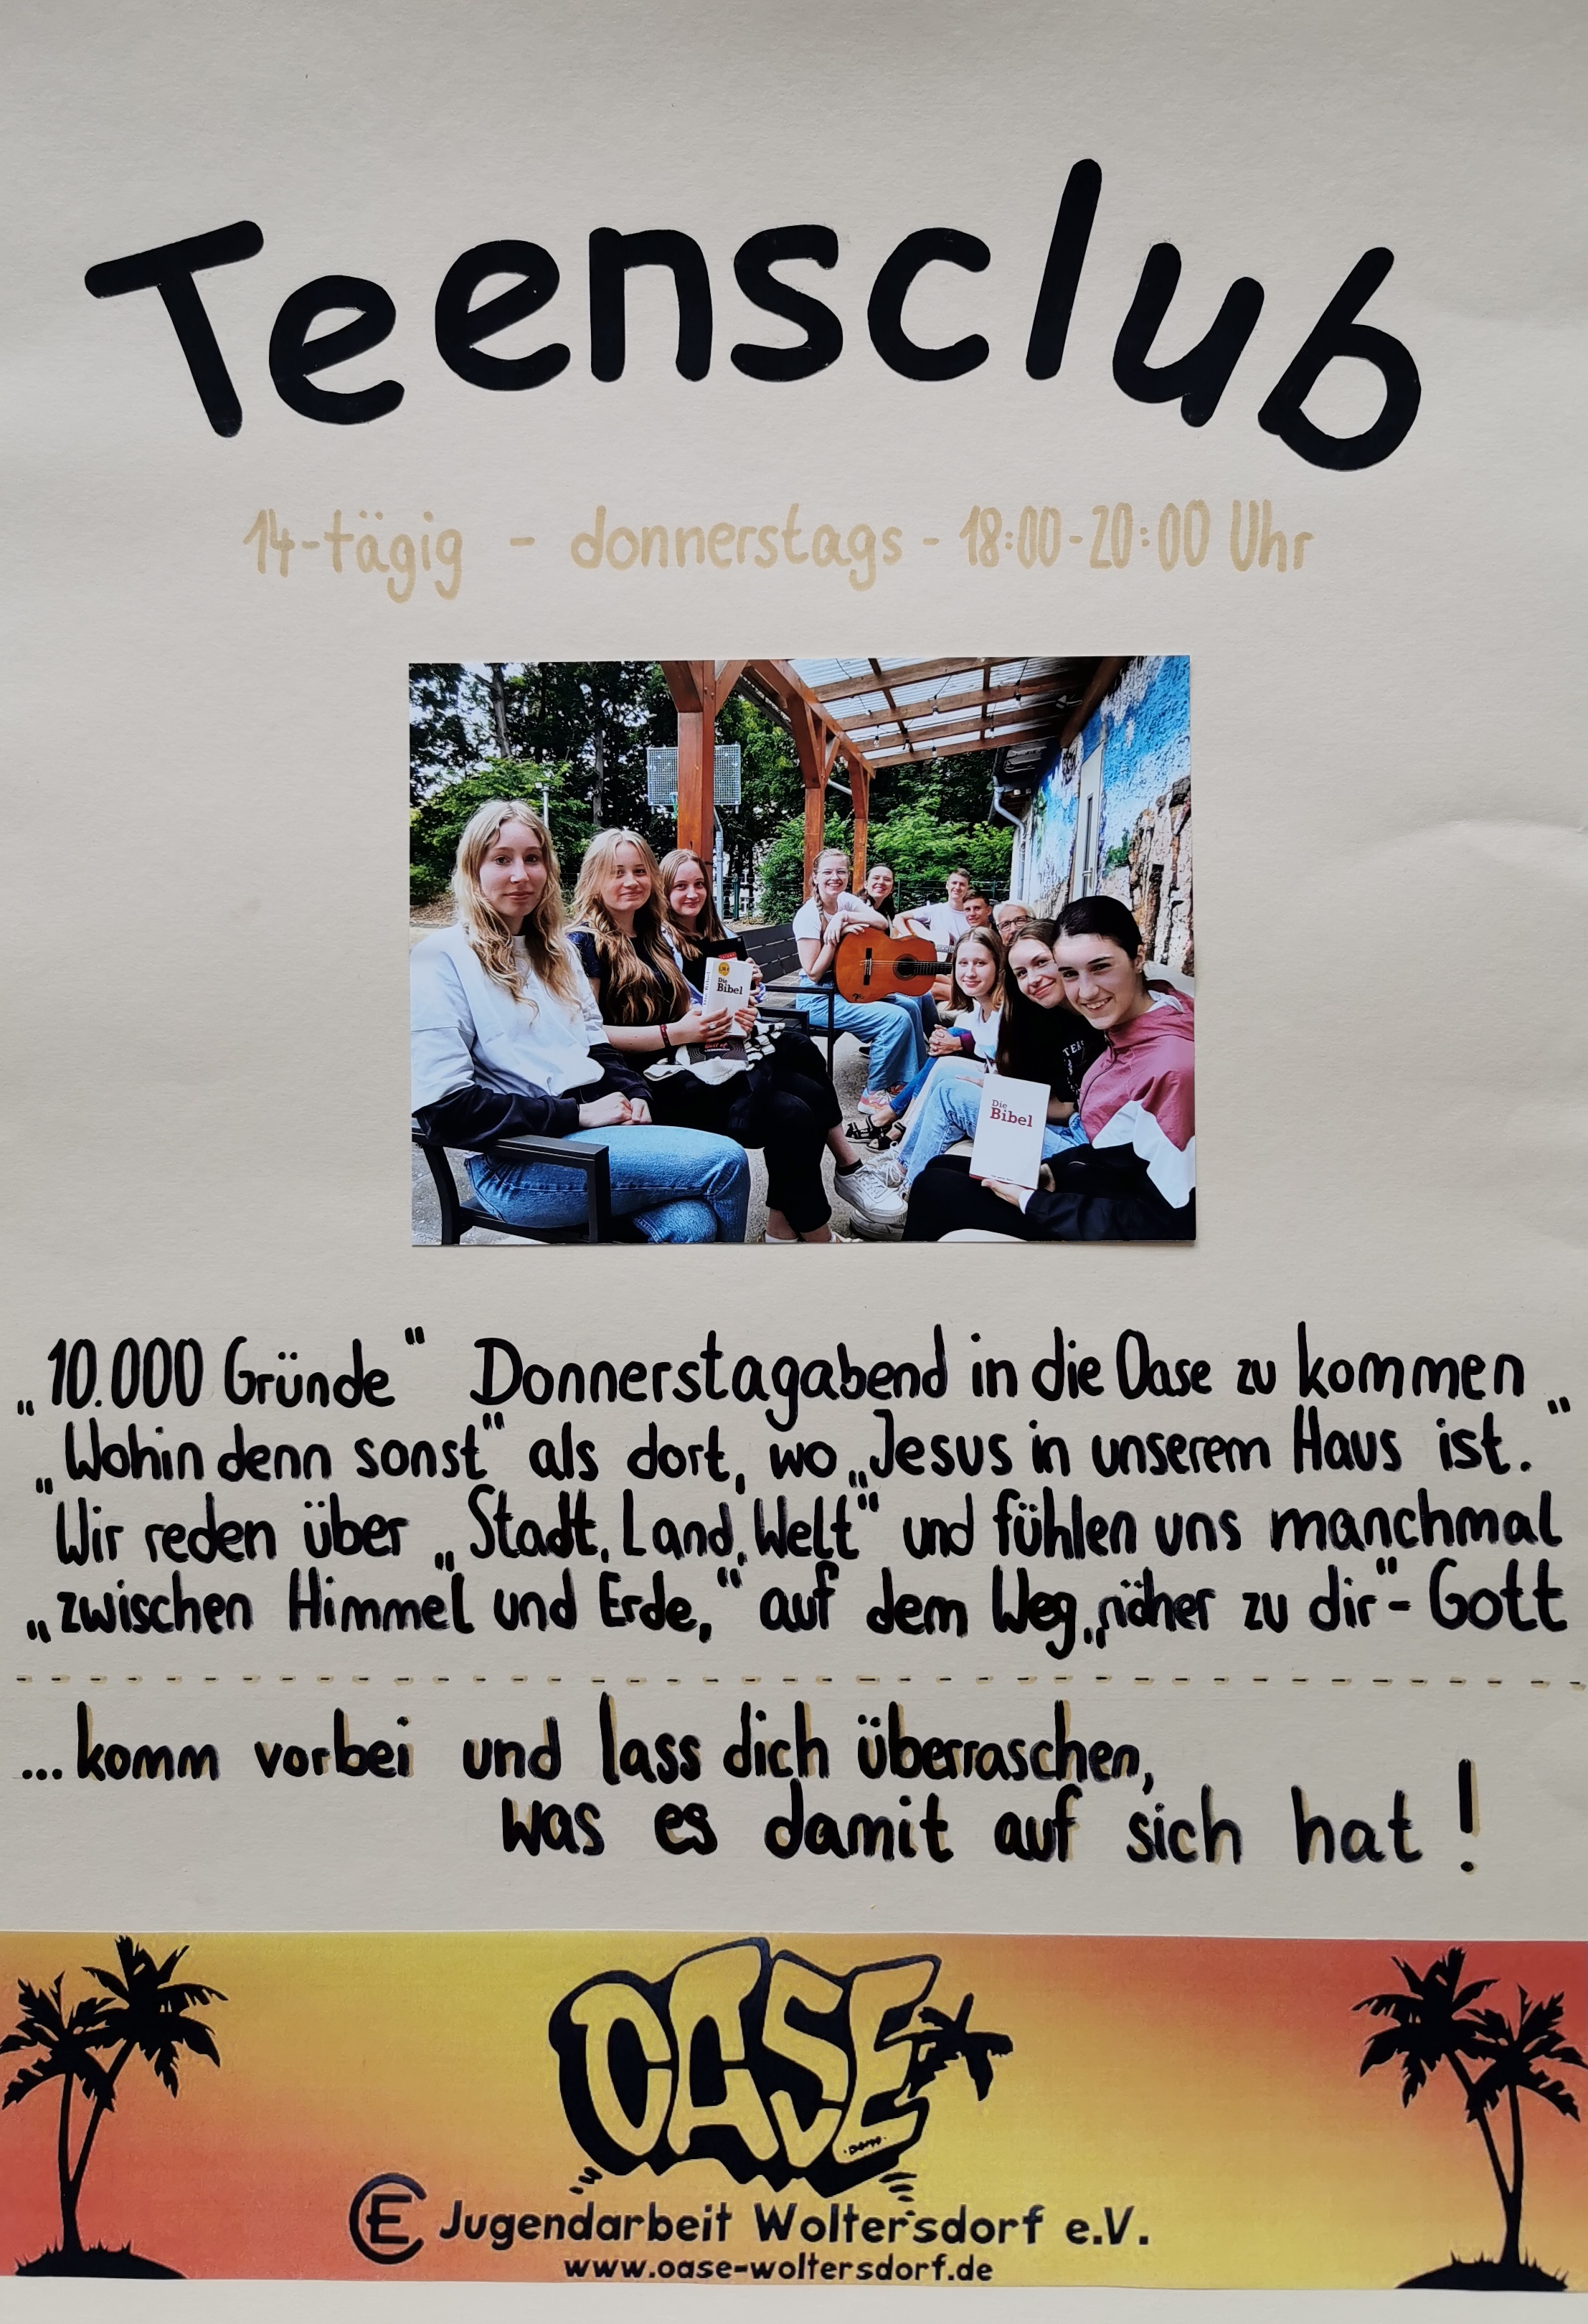 Teensclub
14-tägig - donnerstags - 18:00-20:00 Uhr
Die
Bibel
Die
Bibel
„10.000 Gründe“ Donnerstagabend in die Oase zu kommen
„Wohin denn sonst“ als dort, wo „Jesus in unserem Haus ist.“
Wir reden über „Stadt, Land, Welt“ und fühlen uns manchmal
„zwischen Himmel und Erde,“ auf dem Weg „näher zu dir“- Gott
...komm vorbei und lass dich überraschen,
was es damit auf sich hat!
OASE
EC Jugendarbeit Woltersdorf e.V.
www.oase-woltersdorf.de